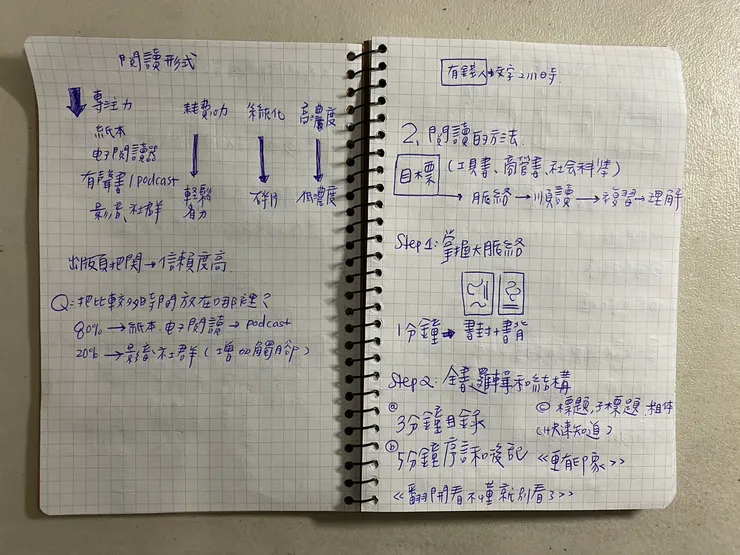 閱讀形式
專注力 耗費心力 系統化 高濃度
紙本
电子閱讀器
有聲書/podcast
影音、社群 輕鬆省力 不行 低濃度
出版有把關→信賴度高
Q:把比較多時間放在哪裡?
80%→紙本.电子閱讀→podcast
20%→影音.社群(增加觸角)
有錢人→文字
2.閱讀的方法.
目標 (工具書、商管書、社會科學)
→脈絡→順讀→複習→理解
Step1:掌握大脈絡
1分鐘→書封+書背
Step2:全書邏輯和結構
ⓐ 3分鐘目錄
ⓑ 5分鐘序言和後記
ⓒ 標題,子標題,粗体
(快速知道)
<<更有印象>>
<<翻開看不懂就別看了>>